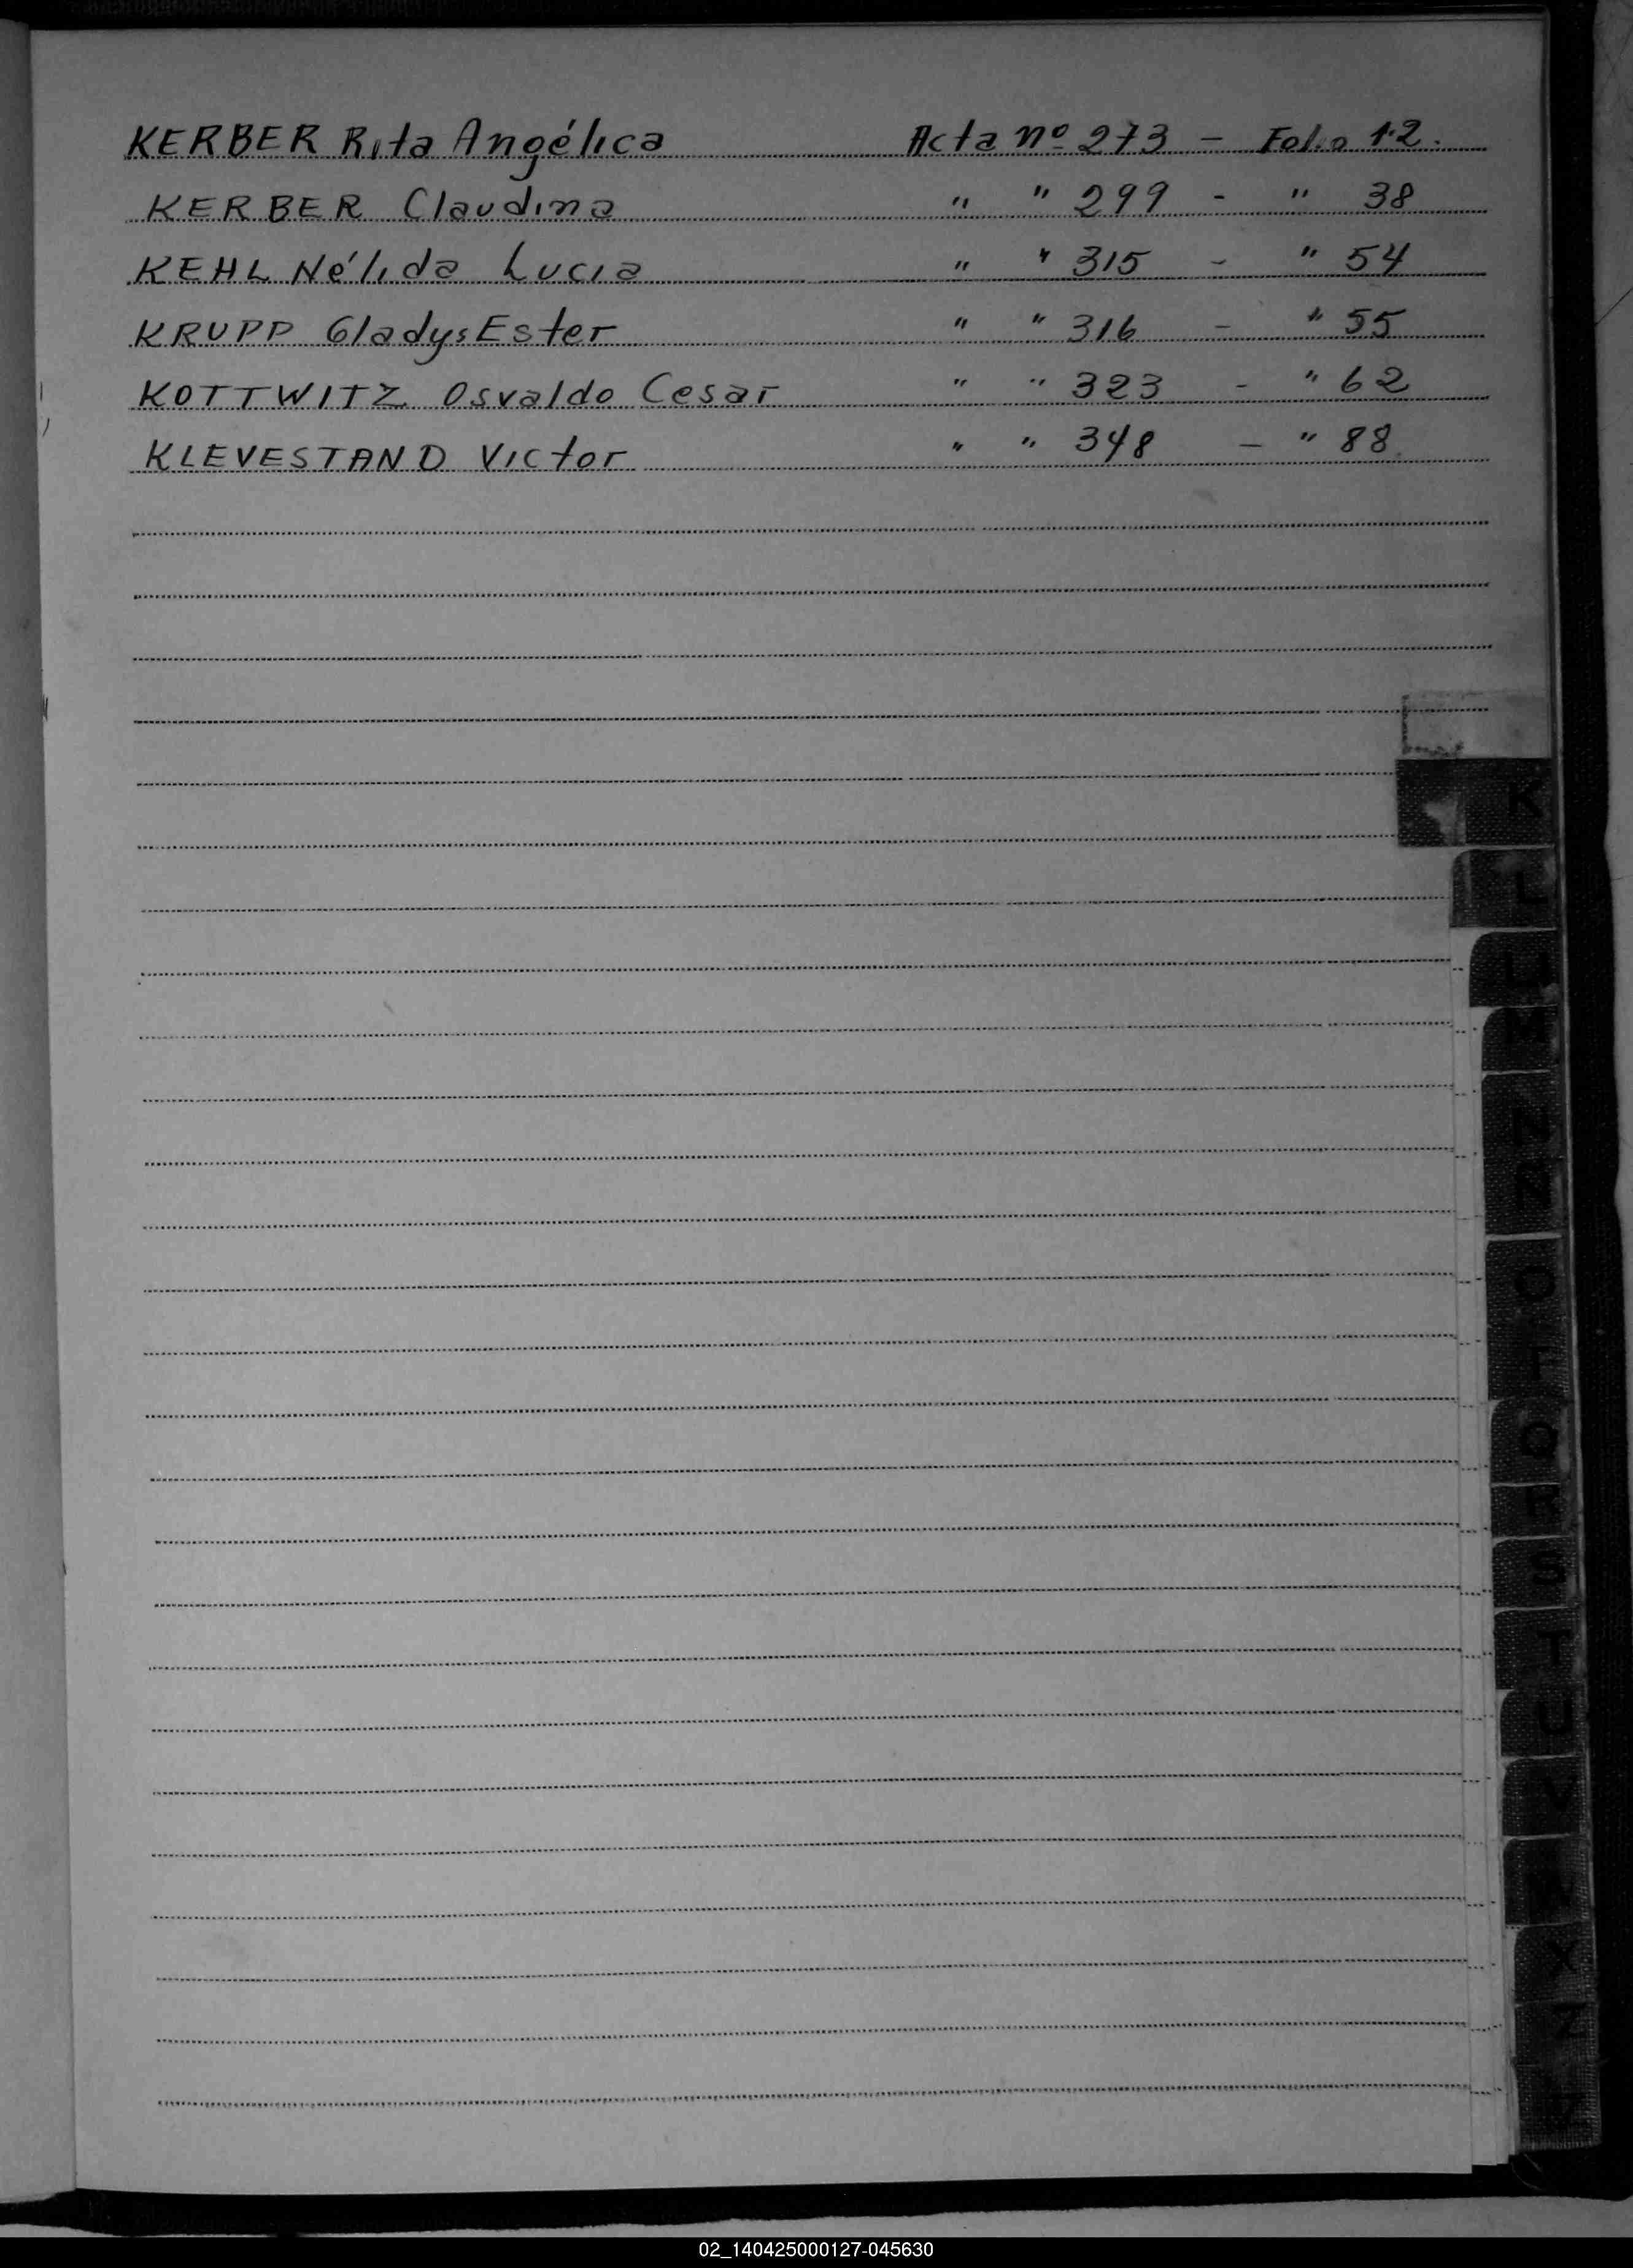 KERBER Rita Angélica Acta nº 273 - Folio 12.
KERBER Claudina " " 299 - " 38
KEHL Nélida Lucia " " 315 - " 54
KRUPP Gladys Ester " " 316 - " 55
KOTTWITZ Osvaldo Cesar " " 323 - " 62
KLEVESTAND Victor " " 348 - " 88
K
L
M
N
Ñ
O
Q
R
S
T
U
V
X
Z
02_140425000127-045630